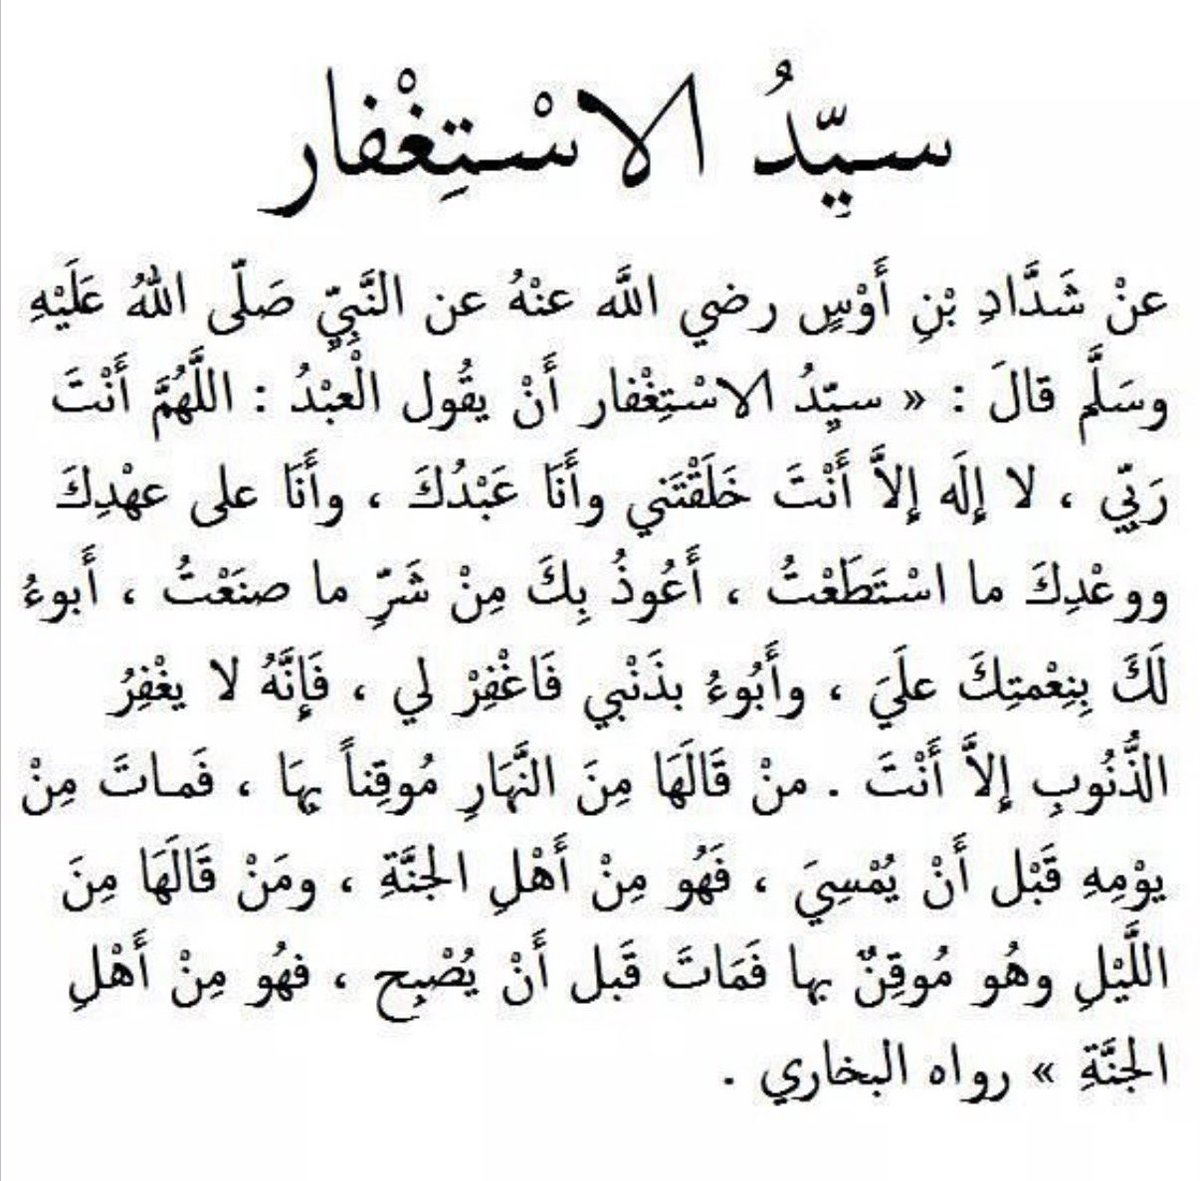 سيِّدُ الاسْتِغْفار
عنْ شَدَّادِ بْنِ أَوْسٍ رضي اللَّه عنْهُ عن النَّبِيِّ صَلّى اللهُ عَلَيْهِ
وسَلَّم قالَ : « سيِّدُ الاسْتِغْفار أَنْ يقُول الْعبْدُ : اللَّهُمَّ أَنْتَ
رَبِّي ، لا إِلَه إِلاَّ أَنْتَ خَلَقْتَني وأَنَا عَبْدُكَ ، وأَنَا على عهْدِكَ
ووعْدِكَ ما اسْتَطَعْتُ ، أَعُوذُ بِكَ مِنْ شَرِّ ما صنَعْتُ ، أَبوءُ
لَكَ بِنِعْمتِكَ علَيَ ، وأَبُوءُ بذَنْبي فَاغْفِرْ لي ، فَإِنَّهُ لا يغْفِرُ
الذُّنُوبِ إِلاَّ أَنْتَ . منْ قَالَهَا مِنَ النَّهَارِ مُوقِناً بِهَا ، فَمـاتَ مِنْ
يوْمِهِ قَبْل أَنْ يُمْسِيَ ، فَهُو مِنْ أَهْلِ الجنَّةِ ، ومَنْ قَالَهَا مِنَ
اللَّيْلِ وهُو مُوقِنٌ بها فَمَاتَ قَبل أَنْ يُصْبِح ، فهُو مِنْ أَهْلِ
الجنَّةِ » رواه البخاري .